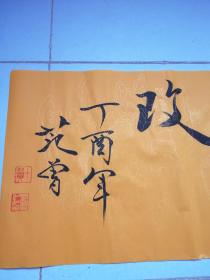 玫
丁酉年
范曾